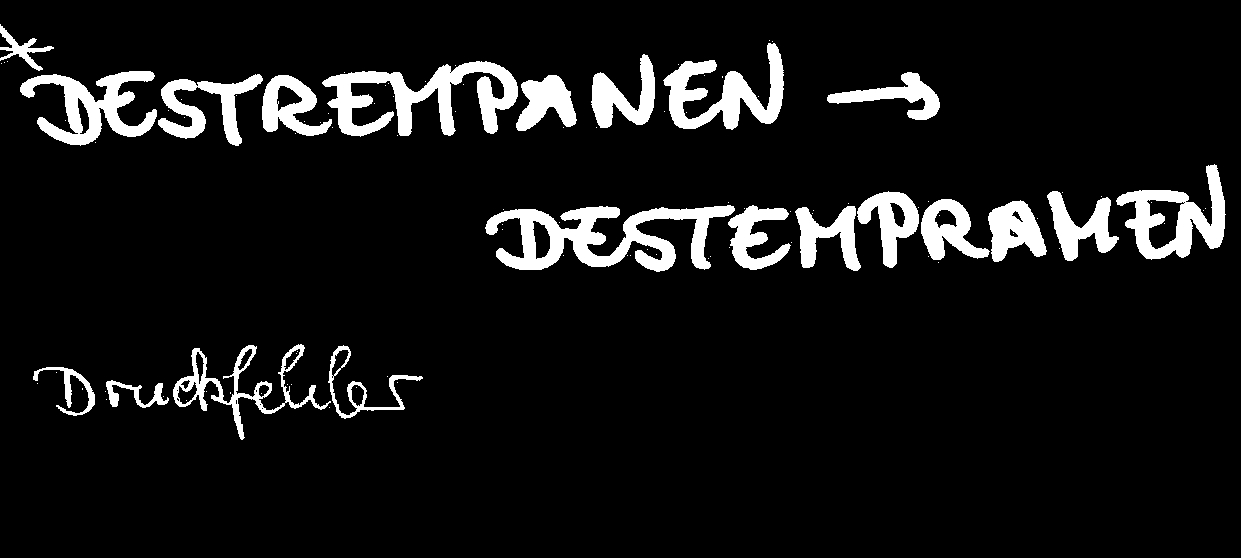 *DESTREMPANEN →
DESTEMPRAMEN
Druckfehler